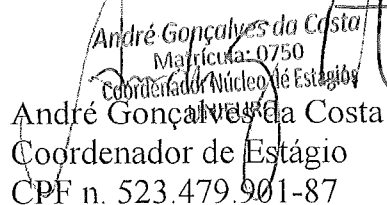 André Gonçalves da Costa
Matrícula: 0750
Coordenador Núcleo de Estágios
André Gonçalves da Costa
Coordenador de Estágio
CPF n. 523.479.901-87